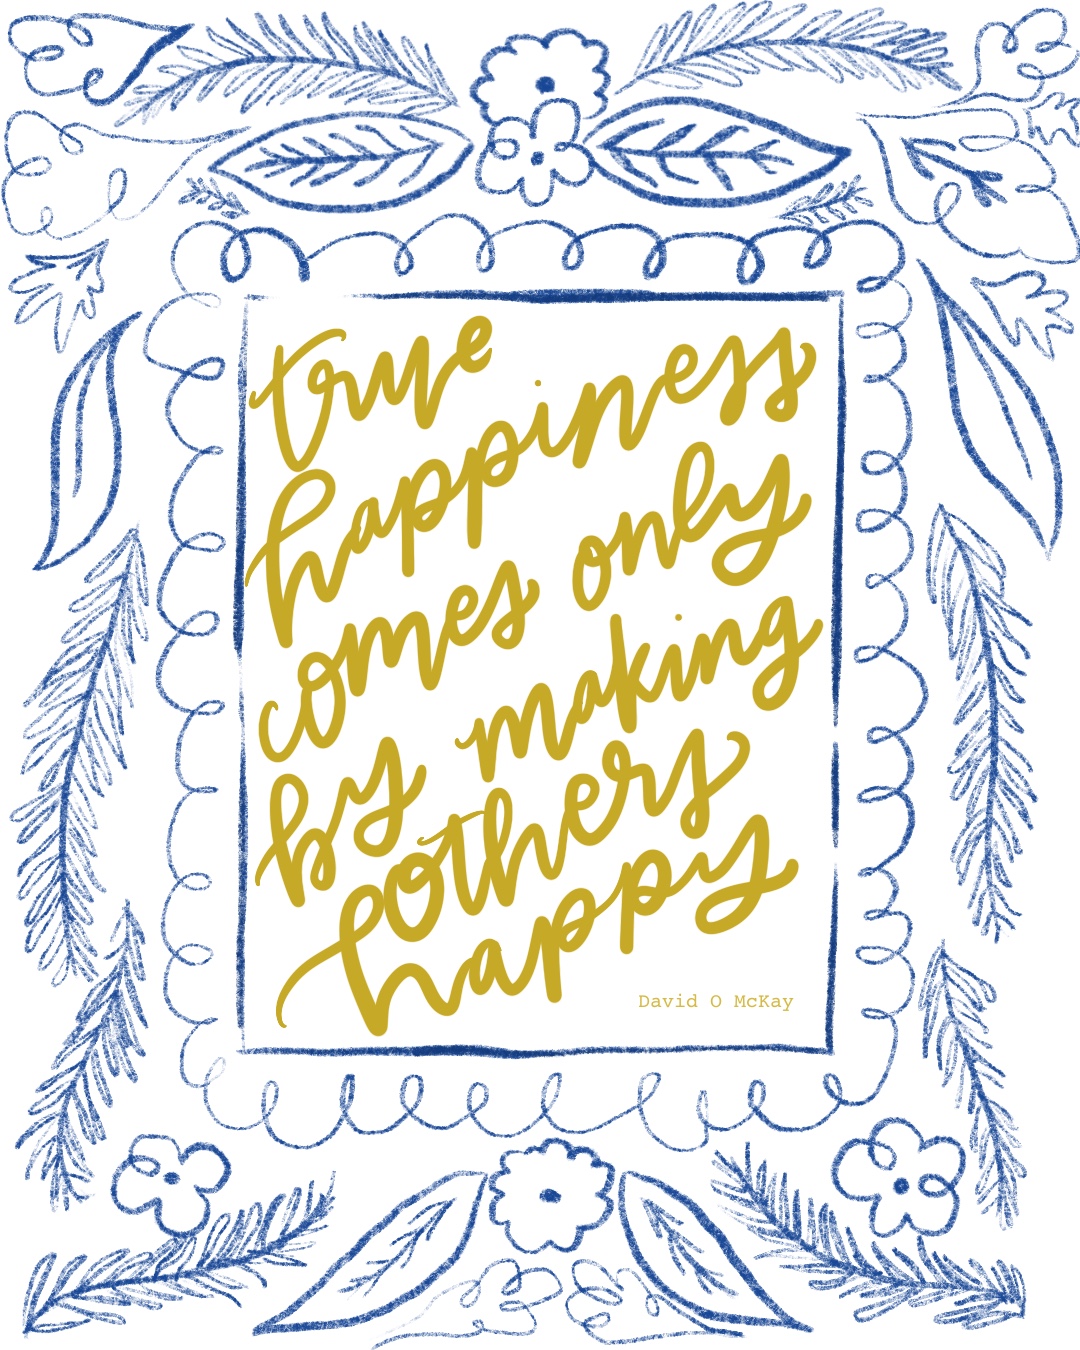 true
happiness
comes only
by making
others
happy
David O McKay